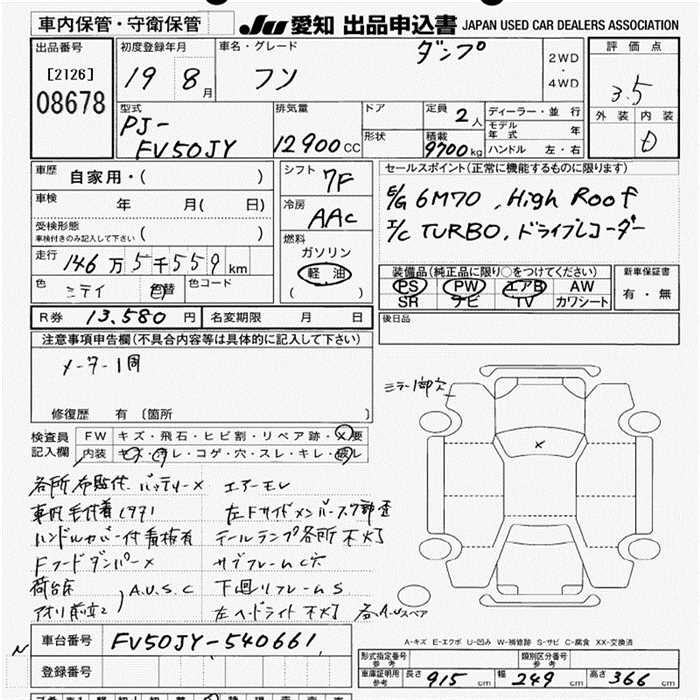 車内保管・守衛保管
JU 愛知 出品申込書 JAPAN USED CAR DEALERS ASSOCIATION
出品番号
[2126]
08678
初度登録年月
19 8月
車名・グレード
フソ ダンプ
2WD
・
4WD
評価点
3.5
外装 内装
D
型式
PJ-
FV50JY
排気量
12900cc
ドア
形状
定員 2人
積載
9700kg
ディーラー・並行
モデル年式 年
ハンドル 左・右
車歴
自家用・( )
車検 年 月( 日)
受検形態
車検付きのみ記入して下さい ( )
走行 146万5千559km
色 色替 色コード
シフト 7F
冷房
AAC
燃料
ガソリン
軽油
( )
セールスポイント(正常に機能するものに限ります)
E/G 6M70, High Roof
I/C TURBO, ドライブレコーダー
装備品(純正品に限り○をつけてください)
PS PW エアB AW
SR ナビ TV カワシート
新車保証書
有・無
R券 13,580円 名変期限 月 日
後日品
注意事項申告欄(不具合内容等は具体的に記入して下さい)
メーター1同
修復歴 有 〔箇所 〕
ミラー1部欠
検査員
記入欄
FW キズ・飛石・ヒビ割・リペア跡・X要
内装 キズ・汚レ・コゲ・穴・スレ・キレ・破レ
各所布貼付 バッテリーX エアーモレ
ハンドルカバー付着 テールランプ各所不灯
FフードダンパーX サブフレームC穴
荷台床 A.U.S.C 下廻リフレームS
左ヘッドライト不灯
スペア
A-キズ E-エクボ U-凹み W-補修跡 S-サビ C-腐食 XX-交換済
車台番号 FV50JY-540661
登録番号
型式指定番号
参考
類別区分番号
参考
車庫証明用
参考
長さ 915cm 幅 249cm 高さ 366cm